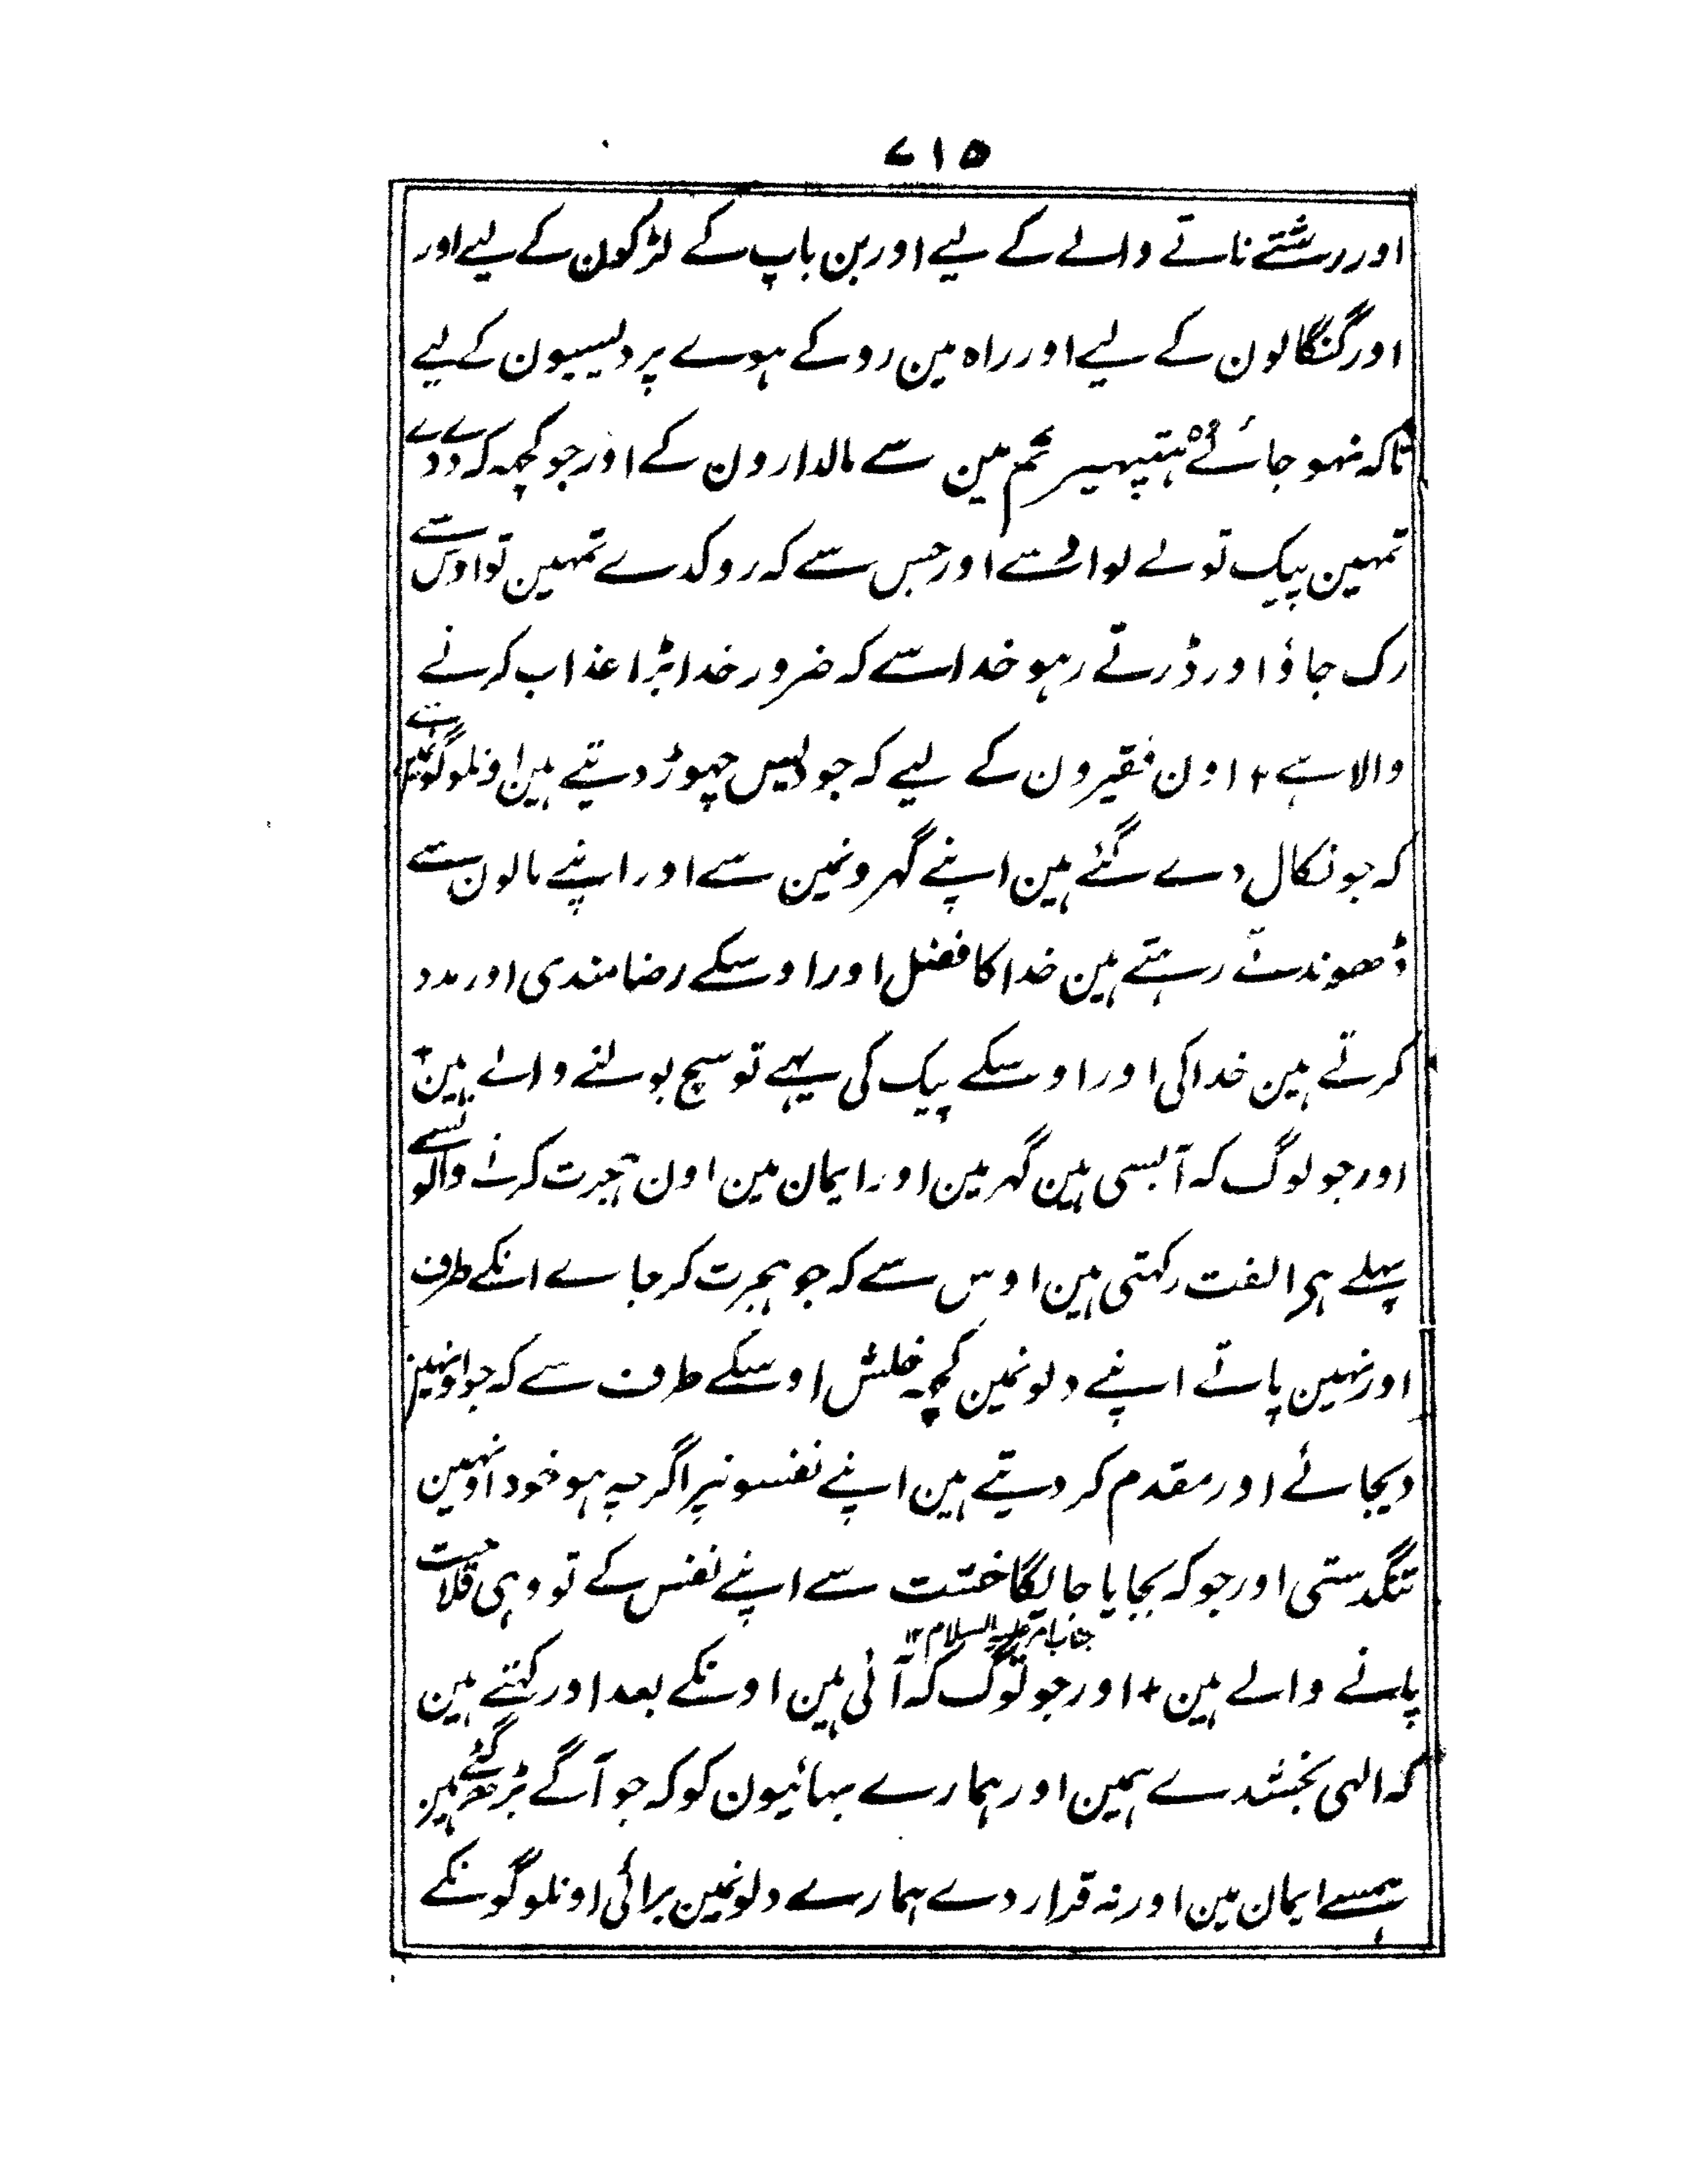 ۷۱۵
اور رشتے ناتے والے کے لیے اور بن باپ کے لڑکون کے لیے اور
اور گنگالون کے لیے اور راہ مین روکے ہوے پردیسیون کے لیے
تاکہ نہو جائے وہ ہتپہیر تم مین سے مالدارون کے اور جو کچہ کہ دے دے
تمہین پیک تو لے لو اوسے اور جس سے کہ روکدے تمہین تو اوس سے
رک جاؤ اور ڈرتے رہو خدا سے کہ ضرور خدا بڑا عذاب کرنے
والا ہے + اون فقیرون کے لیے کہ جو دیس چہوڑ دیتے ہین اونلوگونمین سے
کہ جو نکال دے گئے ہین اپنے گہرونمین سے اور اپنے مالون سے
ڈھوندتے رہتے ہین خدا کا فضل اور اوسکے رضامندی اور مدد
کرتے ہین خدا کی اور اوسکے پیک کی یہے تو سچ بولنے والے ہین +
اور جو لوگ کہ آبسی ہین گہر مین اور ایمان مین اون ہجرت کرنے والونسے
پہلے ہی الفت رکہتی ہین اوس سے کہ جو ہجرت کر جاے انکے طرف
اور نہین پاتے اپنے دلونمین کچہ خلش اوسکے طرف سے کہ جو اونہین
دیجائے اور مقدم کر دیتے ہین اپنے نفسونپر اگرچہ ہو خود اونہین
تنگدستی اور جو کہ بچایا جائیگا خسّت سے اپنے نفس کے تو وہی فلاحیت
جناب امیر علیہ السلام ۱۲
پانے والے ہین + اور جو لوگ کہ آئی ہین اونکے بعد اور کہتے ہین
کہ الہی بخشدے ہمین اور ہمارے بہائیون کو کہ جو آگے بڑھ گئے ہین
ہمسے ایمان مین اور نہ قرار دے ہمارے دلونمین برائی اونلوگونکے